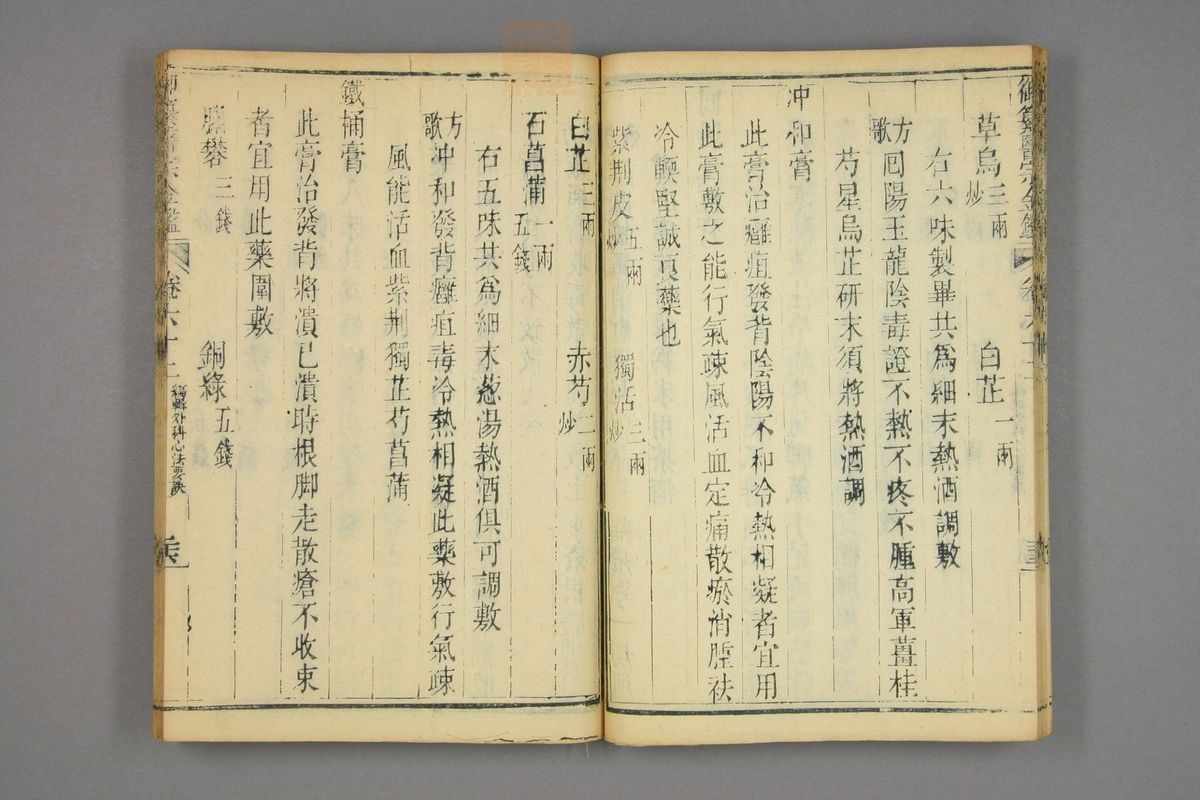 御纂醫宗金鑑
草烏三兩炒　白芷一兩
右六味製畢共為細末熱酒調敷
方歌　囘陽玉龍陰毒證不熱不疼不腫高軍薑桂
芍星烏芷研末須將熱酒調
冲和膏
此膏治癰疽發背陰陽不和冷熱相凝者宜用
此膏敷之能行氣疎風活血定痛散瘀消腫祛
冷軟堅誠良藥也
紫荆皮五兩炒　獨活三兩炒
白芷三兩　赤芍二兩炒
石菖蒲一兩五錢
右五味共為細末葱湯熱酒俱可調敷
方歌　冲和發背癰疽毒冷熱相凝此藥敷行氣疎
風能活血紫荆獨芷芍菖蒲
鐵桶膏
此膏治發背將潰已潰時根脚走散瘡不收束
者宜用此藥圍敷
膽礬三錢　銅綠五錢
卷六十二　編輯外科心法要訣